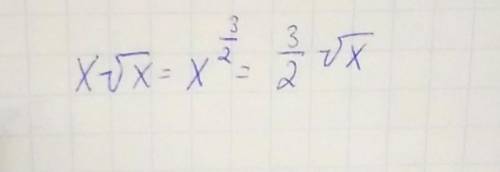 x√x = x^(3/2) = 3/2 √x